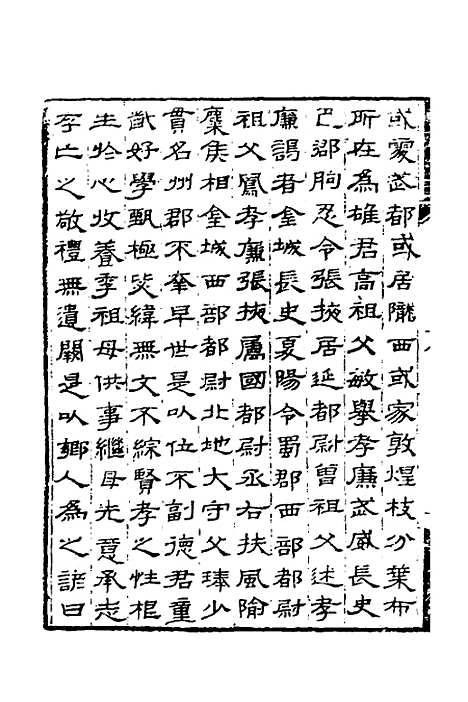 或處武都或居隴西或家敦煌枝分葉布
所在為雄君高祖父敏舉孝廉武威長史
巴郡朐忍令張掖居延都尉曾祖父述孝
廉謁者金城長史夏陽令蜀郡西部都尉
祖父鳳孝廉張掖屬國都尉丞右扶風隃
麋侯相金城西部都尉北地大守父琫少
貫名州郡不幸早世是以位不副德君童
齔好學甄極毖緯無文不綜賢孝之性根
生於心收養季祖母供事繼母先意承志
存亡之敬禮無遺闕是以鄉人為之諺曰